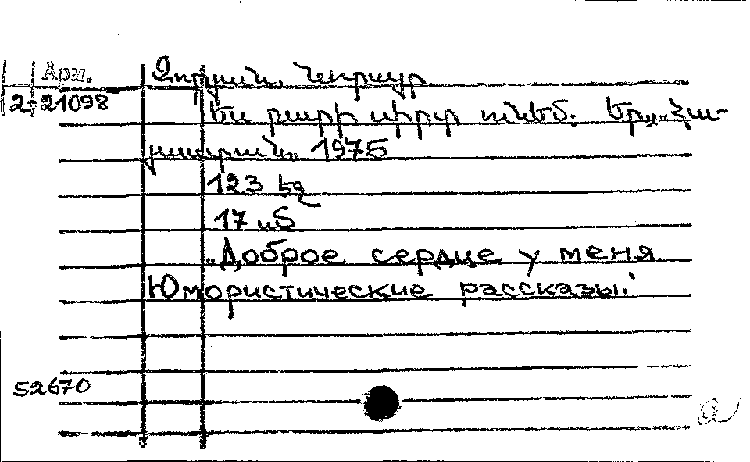 Арм.
2-21098
Ես բարի սիրտ ունեմ. Եր., Հա-
յաստան, 1975
123 էջ
17 սմ
„Доброе сердце у меня
Юмористические рассказы."
52670